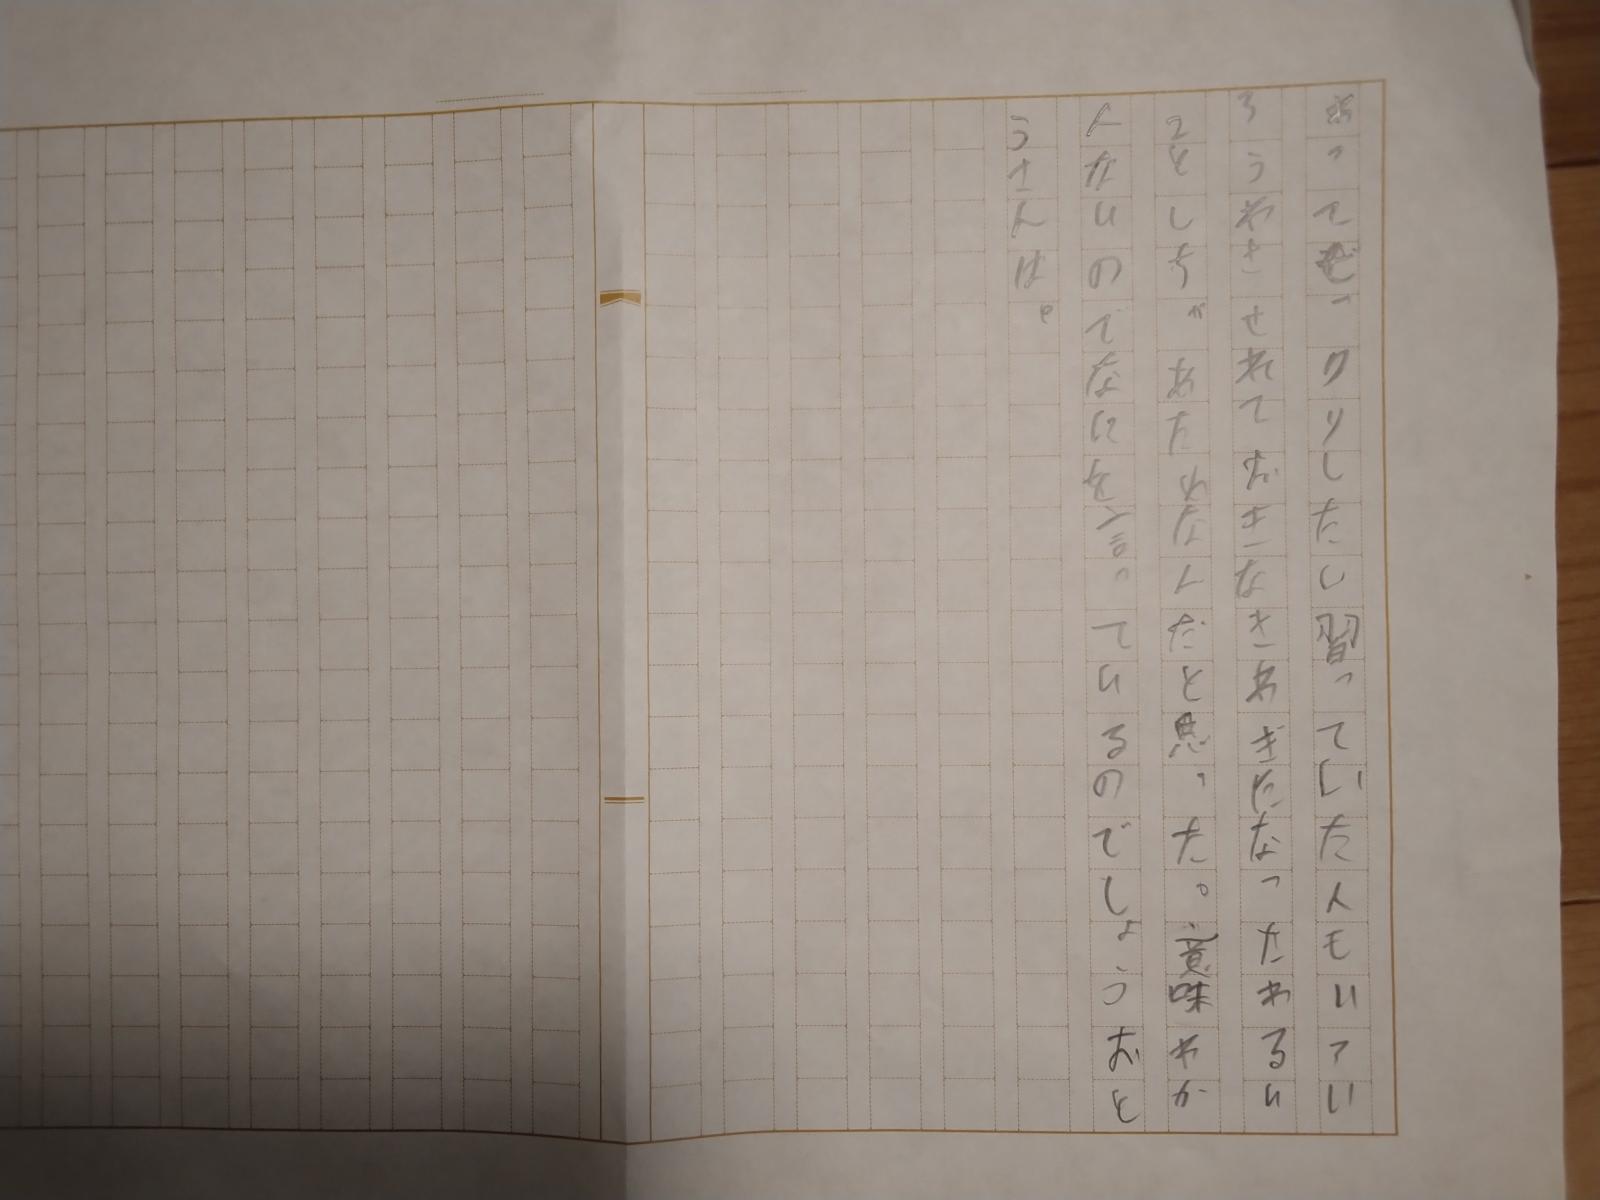 ってびっクリしたし習っていた人もいアい
ろうわさせれておきなきわぎになったわるい
ことしちがあたわなんだと思った。意味わか
んないのでなにを言っているのでしょうおと
うさんは。